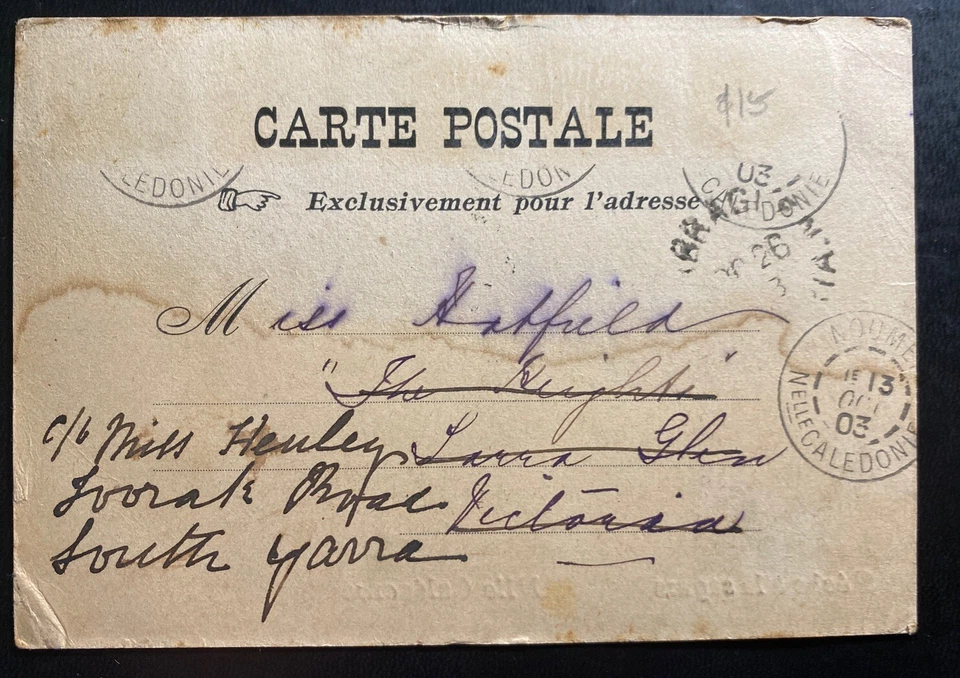 $15
CARTE POSTALE
LEDONIE
EDON
03
CALEDONIE
Exclusivement pour l'adresse
26
Miss Hatfield
"The Heights"
Yarra Glen
Victoria
c/o Miss Henley
Toorak Road
South Yarra
NOUMEA
13
OCT
03
NELLE CALEDONIE